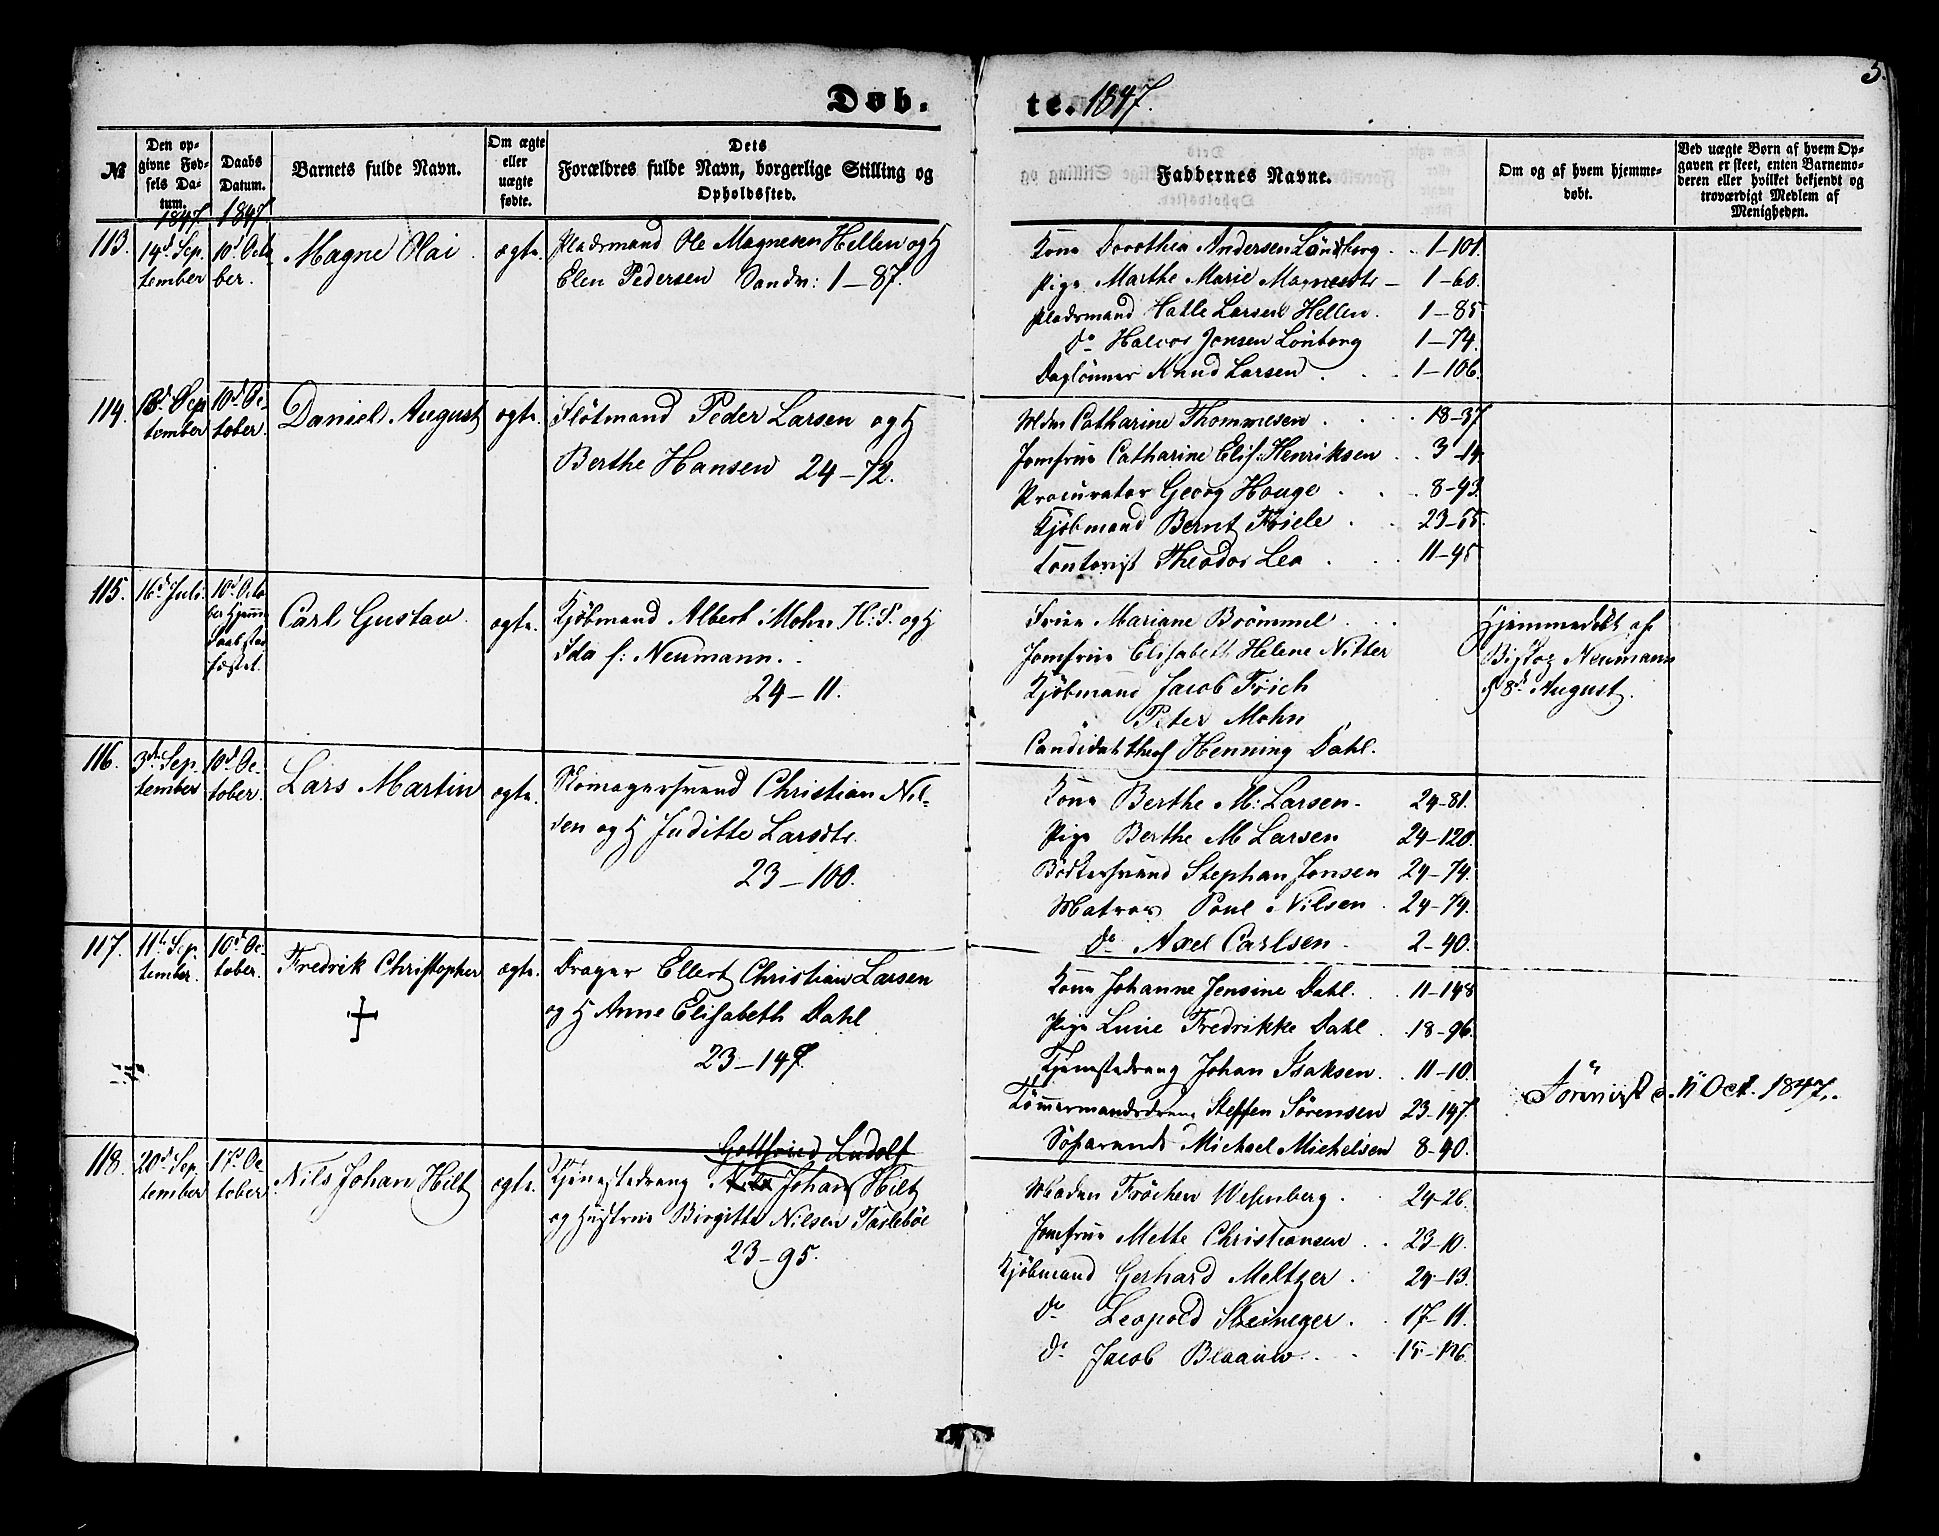 Døb. te. 1847. 5.
№
Den opgivne Fødsels Datum.
Daabs Datum.
Barnets fulde Navn.
Om ægte eller uægte fødte.
Dets Forældres fulde Navn, borgerlige Stilling og Opholdssted.
Faddernes Navne.
Om og af hvem hjemmedøbt.
Ved uægte Børn af hvem Opgaven er skeet, enten Barnemoderen eller hvilket bekjendt og troværdigt Medlem af Menigheden.
1847. 1847
113. 14d Sep 10d Octo Magne Olai ægte. Pladsmand Ole Magnesen Hellen og H
tember ber. Elen Pedersen Sandv: 1–87.
Kone Dorothea Andersen Lundborg 1–101.
Pige Marthe Marie Magnesdtr – 1–60.
Pladsmand Halle Larsen Hellen. 1–85
do Halvor Jonsen Lönborg 1–74.
Daglønner Knud Larsen 1–106.
114. 18d Sep 10d Oc Daniel August ægte. Flötmand Peder Larsen og H
tember tober. Berthe Hansen 24–72.
Mdm Catharine Thommesen 18–37
Jomfrue Catharine Elis: Henriksen 3–14
Procurator Georg Hauge 8–93.
Kjöbmand Bernt Föiele 23–55.
Contorist Theodor Lea 11–95
115. 16d Juli. 10d Octo Carl Gustav ægte. Kjöbmand Albert Mohn H: S. og H
ber Hjemme Ida f: Neumann.
Daab stad
fæstet. 24–11.
Frue Mariane Brömmel
Jomfrue Elisabeth Helene Nitter
Kjöbmand Jacob Früch
Peter Mohn
Candidat theol Henning Dahl.
Hjemmedöbt af
Biskop Neumann
d 8d August.
116. 3die Sep 10d Oc Lars Martin ægte. Skomagersvend Christian Nil-
tember tober. sen og H Juditte Larsdtr.
23–100.
Kone Berthe M: Larsen 24–81.
Pige Berthe M Larsen 24–120.
Bödkersvend Stephan Jonsen 24–74.
Matros Poul Nilsen 24–74.
do Axel Carlsen 2–40.
117. 11te Sep 10d Oc Fredrik Christopher ægte. Drager Ellert Christian Larsen
tember. tober. og H Anne Elisabeth Dahl
23–147.
Kone Johanne Jensine Dahl 11–148
Pige Luise Fredrikke Dahl 18–96.
Tjenestedreng Johan Isaksen 11–10.
Tömmermandsdreng Steffen Sörensen 23–147.
Söfarende Michael Michelsen 8–40.
11 Oct. 1847.
118. 20d Sep 17d Oc Nils Johan Hilt ægte. Gottfried Ludolf
tember tober Tjenestedreng Nils Johan Hilt
og Hustrue Birgitte Nilsen Taslebøe
23–95.
Madm Fröchen Wesenberg 24–26.
Jomfrue Mette Christiansen 23–10.
Kjöbmand Gerhard Meltzer 24–13.
do Leopold Steineger 17–11.
do Jacob Blaauw 15–126.